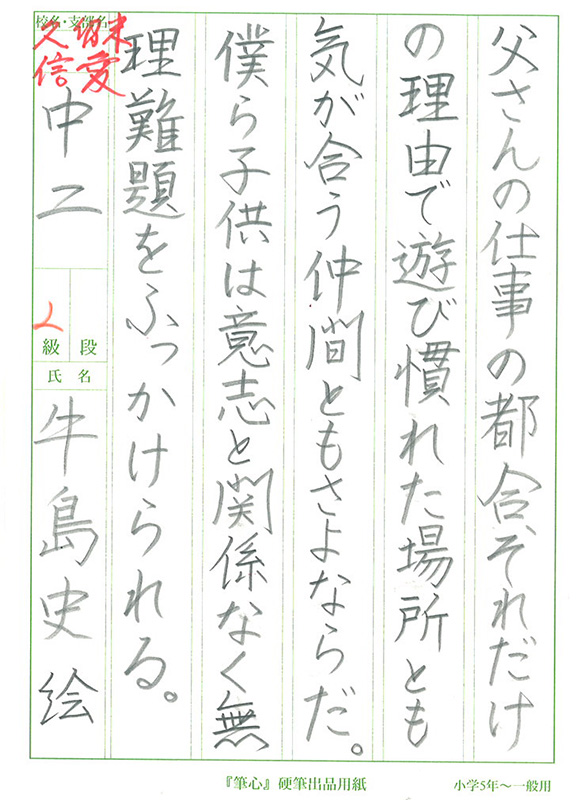 父さんの仕事の都合、それだけ
の理由で遊び慣れた場所とも
気が合う仲間ともさよならだ。
僕ら子供は意志と関係なく無
理難題をふっかけられる。
校名・支部名
久留米
信愛
中二
段
級
2
氏名
牛島史絵
『筆心』硬筆出品用紙
小学5年～一般用